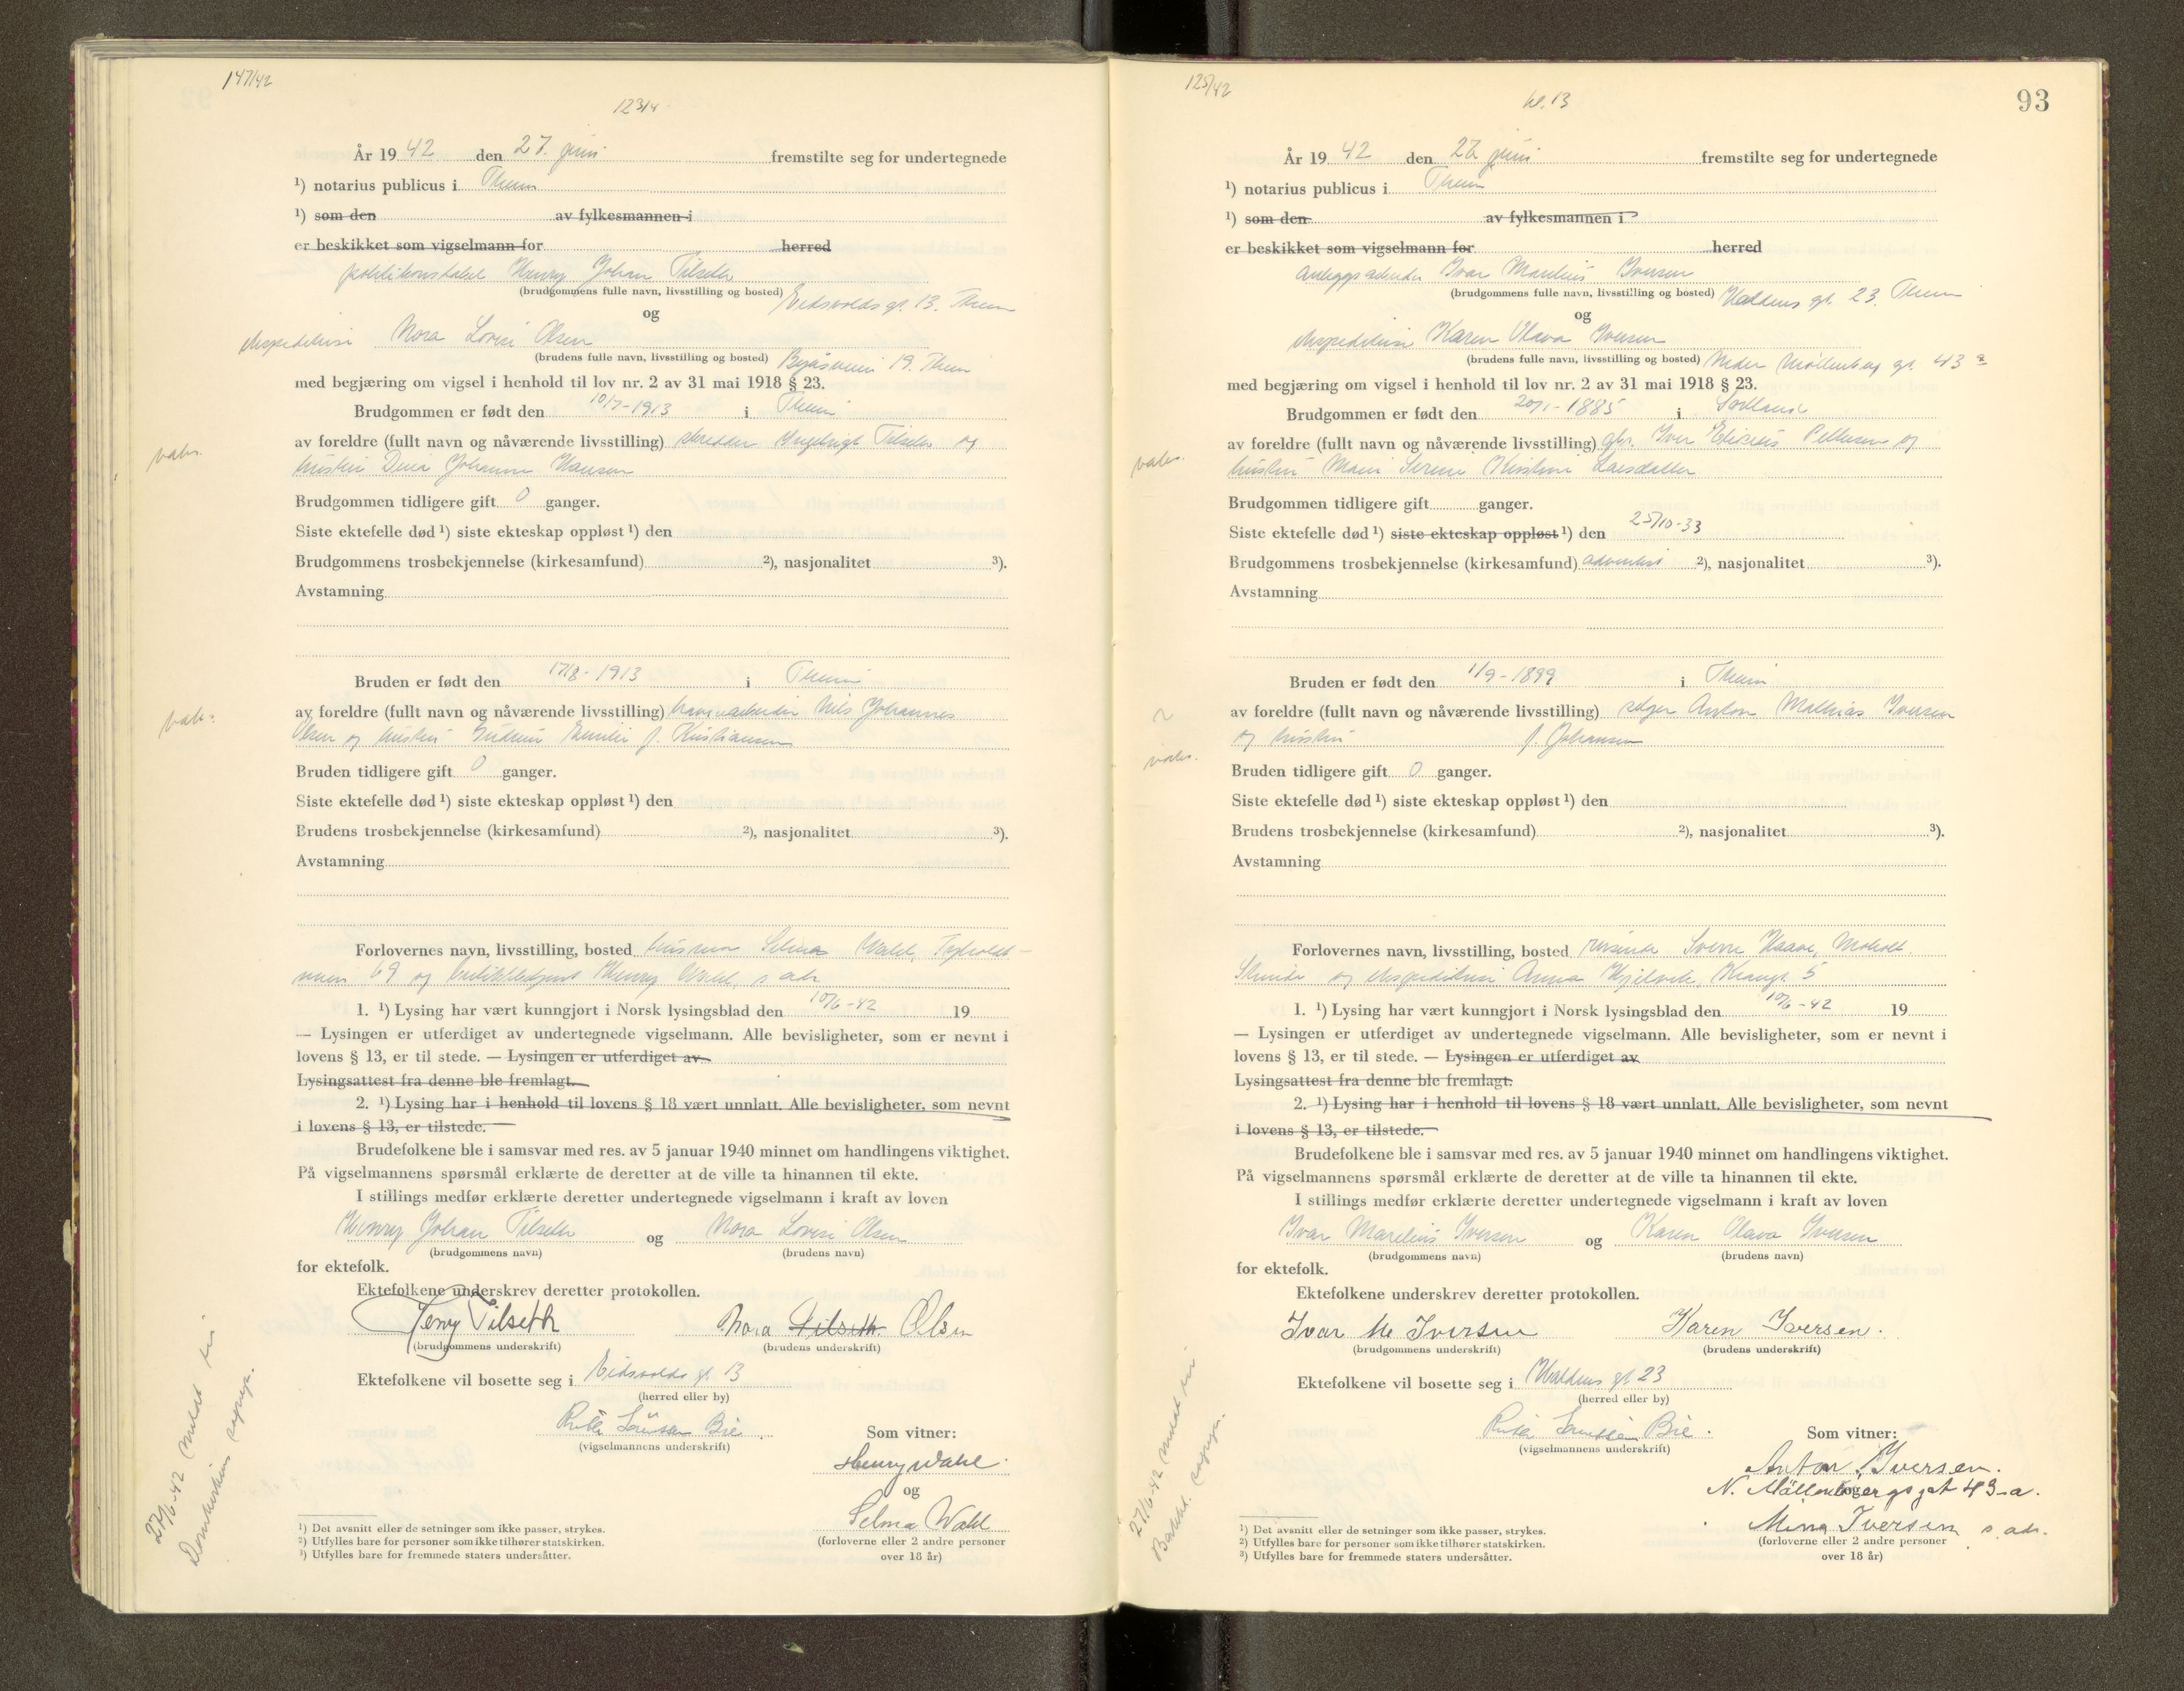 147/42
123/4
År 19 42 den 27. juni fremstilte seg for undertegnede
¹) notarius publicus i Thein
¹) som den av fylkesmannen i
er beskikket som vigselmann for herred
politikonstabel Henry Johan Tilseth
(brudgommens fulle navn, livsstilling og bosted) Eidsvolds gt. 13. Thein
og
ekspeditrise Nora Lovise Olsen
(brudens fulle navn, livsstilling og bosted) Byåsveien 19. Thein
med begjæring om vigsel i henhold til lov nr. 2 av 31 mai 1918 § 23.
Brudgommen er født den 10/7-1913 i Thein
av foreldre (fullt navn og nåværende livsstilling) skredder Ingebrigt Tilseth og
vabs.
hustru Dina Johanne Hansen
Brudgommen tidligere gift 0 ganger.
Siste ektefelle død ¹) siste ekteskap oppløst ¹) den
Brudgommens trosbekjennelse (kirkesamfund) ²), nasjonalitet ³).
Avstamning
Bruden er født den 17/8-1913 i Thein
av foreldre (fullt navn og nåværende livsstilling) havnearbeider Nils Johannes
vabs.
Olsen og hustru Gudrun Emilie f. Kristiansen
Bruden tidligere gift 0 ganger.
Siste ektefelle død ¹) siste ekteskap oppløst ¹) den
Brudens trosbekjennelse (kirkesamfund) ²), nasjonalitet ³).
Avstamning
Forlovernes navn, livsstilling, bosted husmor Selma Wahl, Tyholt-
veien 69 og Henry Wahl, s. adr.
1. ¹) Lysing har vært kunngjort i Norsk lysingsblad den 10/6-42 19
— Lysingen er utferdiget av undertegnede vigselmann. Alle bevisligheter, som er nevnt i
lovens § 13, er til stede. — Lysingen er utferdiget av
Lysingsattest fra denne ble fremlagt.
2. ¹) Lysing har i henhold til lovens § 18 vært unnlatt. Alle bevisligheter, som nevnt
i lovens § 13, er tilstede.
Brudefolkene ble i samsvar med res. av 5 januar 1940 minnet om handlingens viktighet.
På vigselmannens spørsmål erklærte de deretter at de ville ta hinannen til ekte.
I stillings medfør erklærte deretter undertegnede vigselmann i kraft av loven
Henry Johan Tilseth og Nora Lovise Olsen
(brudgommens navn) (brudens navn)
for ektefolk.
Ektefolkene underskrev deretter protokollen.
Henry Tilseth Nora Tilseth Olsen
(brudgommens underskrift) (brudens underskrift)
Ektefolkene vil bosette seg i Eidsvolds gt. 13
(herred eller by)
Bie
(vigselmannens underskrift)
Som vitner:
Henry Wahl.
og
Selma Wahl
(forloverne eller 2 andre personer
over 18 år)
27/6-42 meldt til
Domkirkens sogn.
¹) Det avsnitt eller de setninger som ikke passer, strykes.
²) Utfylles bare for personer som ikke tilhører statskirken.
³) Utfylles bare for fremmede staters undersåtter.
125/42
kl. 13
93
År 19 42 den 27. juni fremstilte seg for undertegnede
¹) notarius publicus i Thein
¹) som den av fylkesmannen i
er beskikket som vigselmann for herred
anleggsarbeider Ivar Marelius Iversen
(brudgommens fulle navn, livsstilling og bosted) Haldens gt. 23. Thein
og
ekspeditrise Karen Olava Iversen
(brudens fulle navn, livsstilling og bosted) Nedre Møllenberg gt. 43 a
med begjæring om vigsel i henhold til lov nr. 2 av 31 mai 1918 § 23.
Brudgommen er født den 20/1-1885 i Sortland
av foreldre (fullt navn og nåværende livsstilling) gbr. Iver Pettersen og
vabs.
hustru Serine Kristine Larsdatter
Brudgommen tidligere gift ganger.
Siste ektefelle død ¹) siste ekteskap oppløst ¹) den 25/10-33
Brudgommens trosbekjennelse (kirkesamfund) adventist ²), nasjonalitet ³).
Avstamning
Bruden er født den 1/9-1899 i Thein
av foreldre (fullt navn og nåværende livsstilling) Anton Mathias Iversen
og hustru f. Johansen
vabs.
Bruden tidligere gift 0 ganger.
Siste ektefelle død ¹) siste ekteskap oppløst ¹) den
Brudens trosbekjennelse (kirkesamfund) ²), nasjonalitet ³).
Avstamning
Forlovernes navn, livsstilling, bosted Sverre Moholt
Strinda og ekspeditrise Anna 5
1. ¹) Lysing har vært kunngjort i Norsk lysingsblad den 10/6-42 19
— Lysingen er utferdiget av undertegnede vigselmann. Alle bevisligheter, som er nevnt i
lovens § 13, er til stede. — Lysingen er utferdiget av
Lysingsattest fra denne ble fremlagt.
2. ¹) Lysing har i henhold til lovens § 18 vært unnlatt. Alle bevisligheter, som nevnt
i lovens § 13, er tilstede.
Brudefolkene ble i samsvar med res. av 5 januar 1940 minnet om handlingens viktighet.
På vigselmannens spørsmål erklærte de deretter at de ville ta hinannen til ekte.
I stillings medfør erklærte deretter undertegnede vigselmann i kraft av loven
Ivar Marelius Iversen og Karen Olava Iversen
(brudgommens navn) (brudens navn)
for ektefolk.
Ektefolkene underskrev deretter protokollen.
Ivar M Iversen Karen Iversen.
(brudgommens underskrift) (brudens underskrift)
Ektefolkene vil bosette seg i Haldens gt. 23
(herred eller by)
Bie.
(vigselmannens underskrift)
Som vitner:
Anton Iversen.
N. Möllenbergsgat 43-a.
og
Minna Iversen s. adr.
(forloverne eller 2 andre personer
over 18 år)
27/6-42 meldt til
Bakkl. sogn.
¹) Det avsnitt eller de setninger som ikke passer, strykes.
²) Utfylles bare for personer som ikke tilhører statskirken.
³) Utfylles bare for fremmede staters undersåtter.